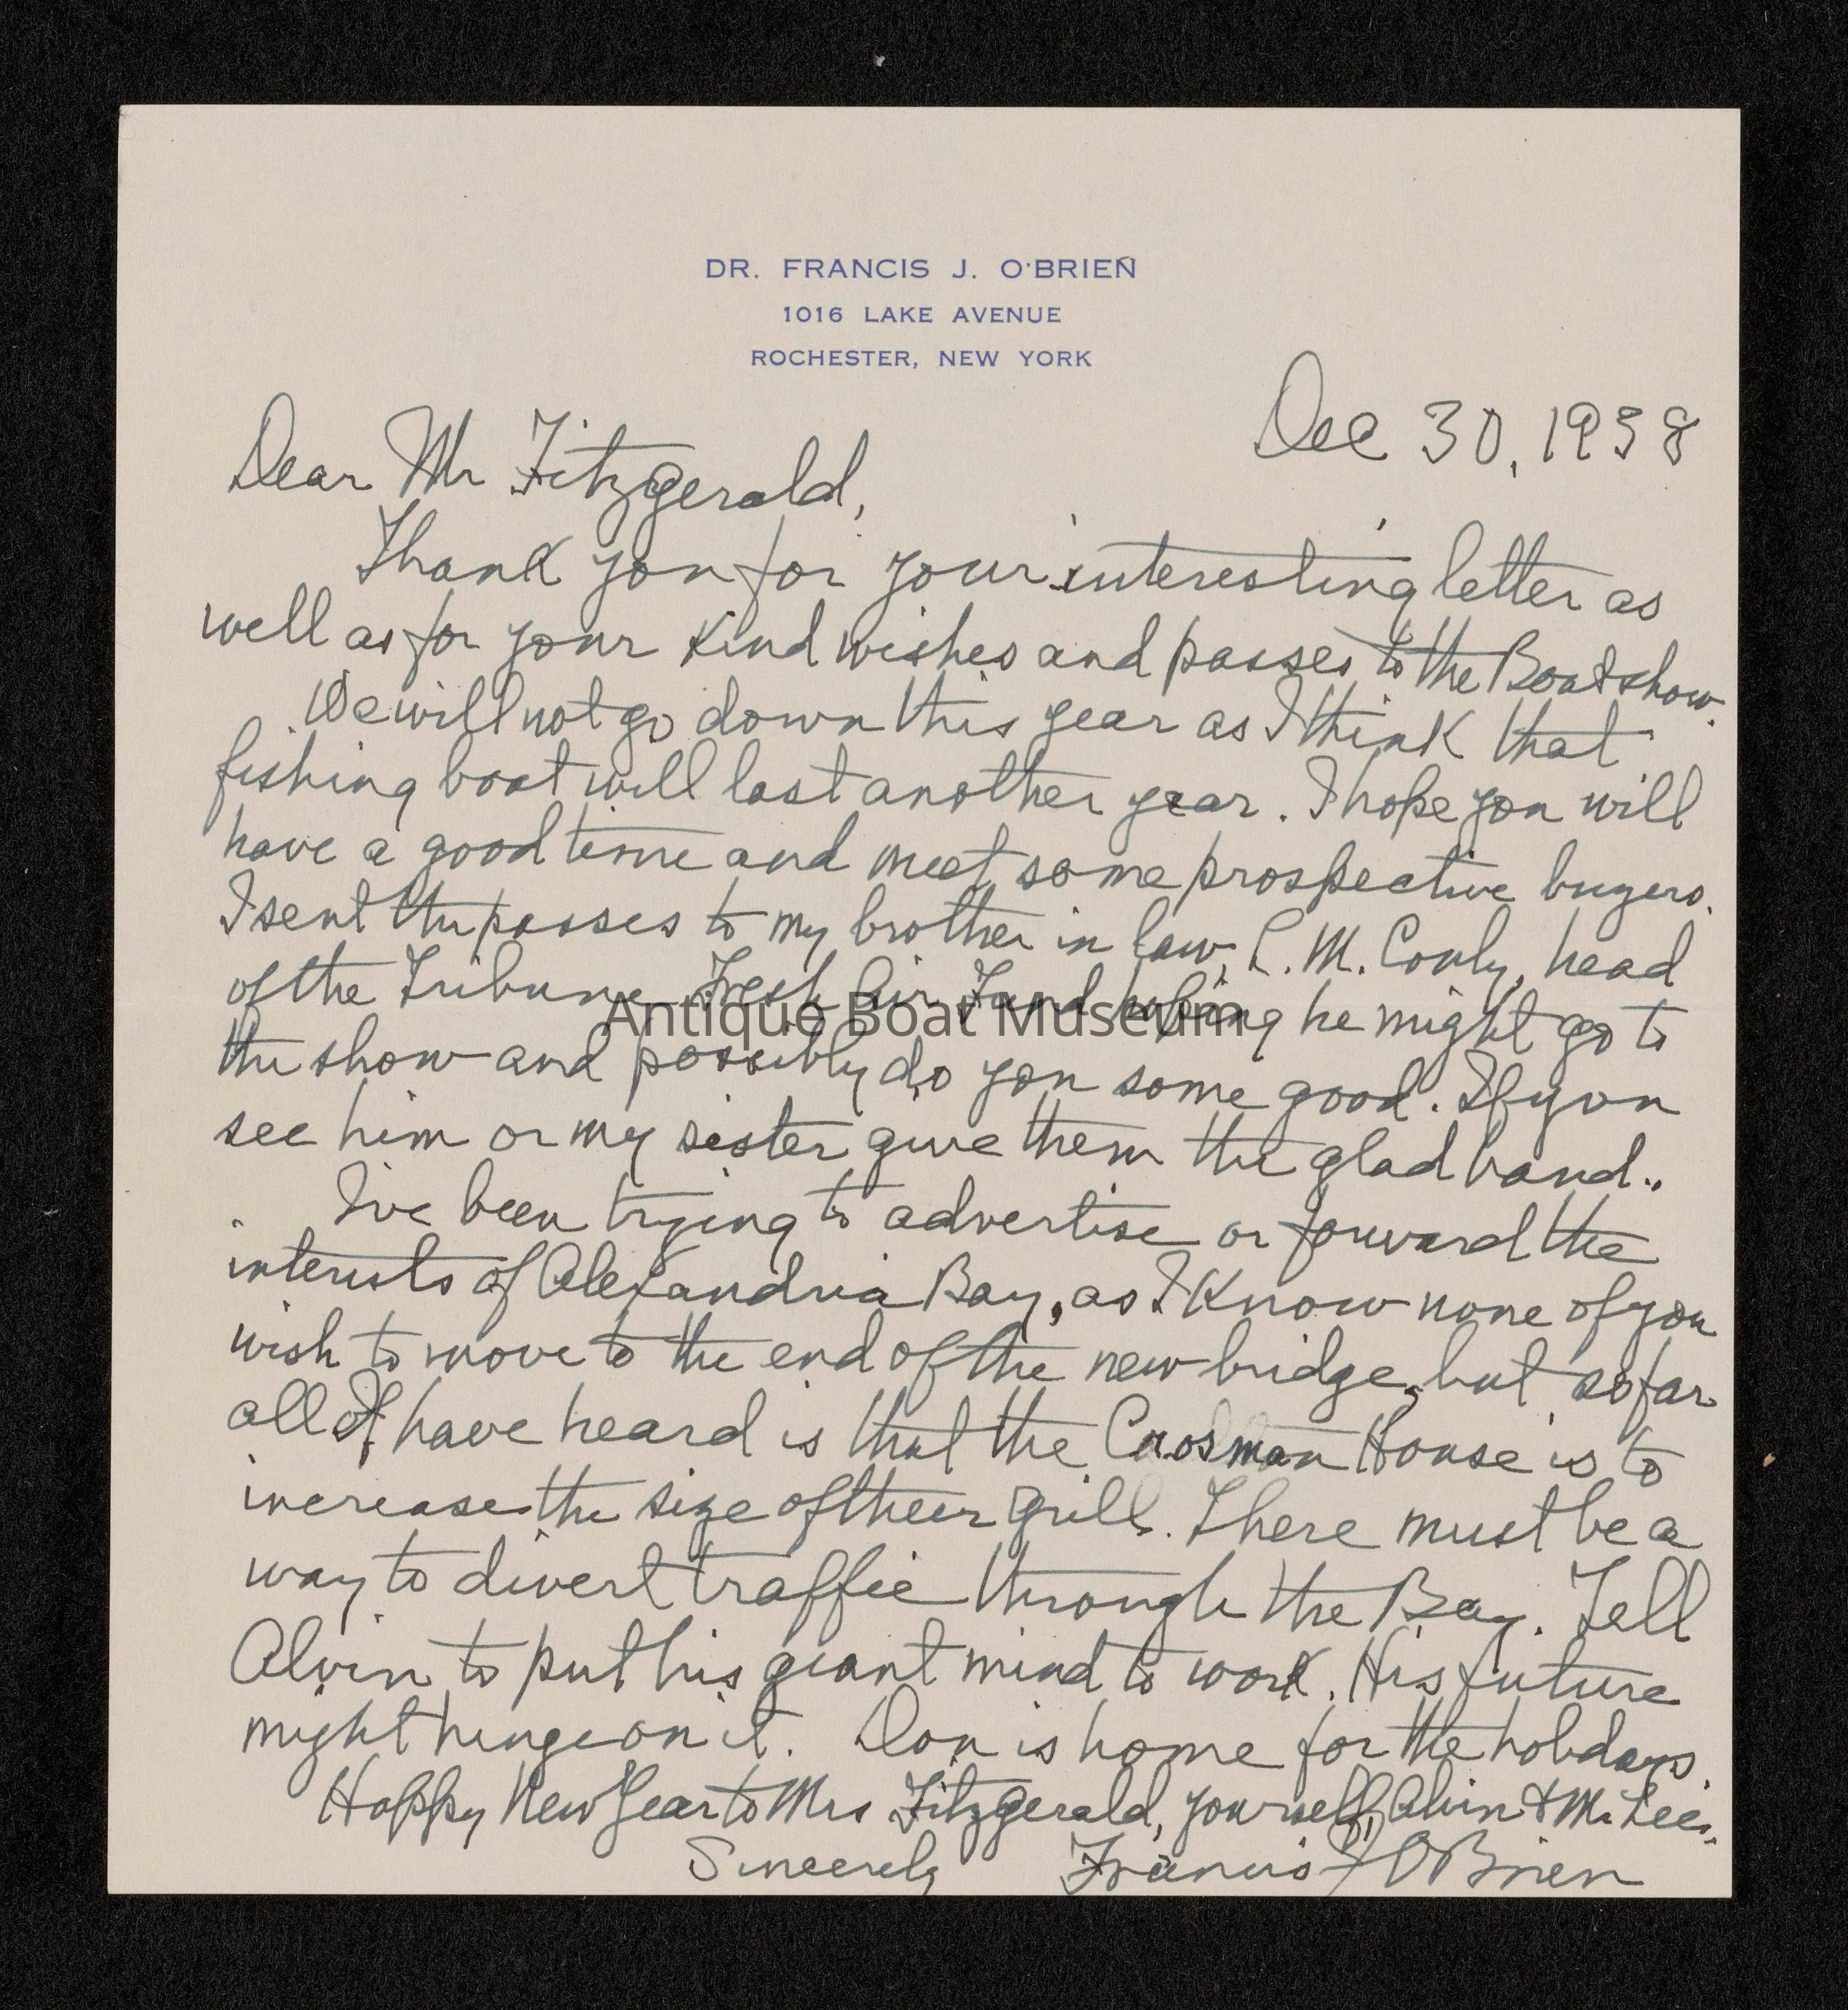 DR. FRANCIS J. O'BRIEN
1016 LAKE AVENUE
ROCHESTER, NEW YORK
Dec 30, 1938
Dear Mr Fitzgerald,
Thank you for your interesting letter as
well as for your kind wishes and passes to the Boat show.
We will not go down this year as I think that
fishing boat will last another year. I hope you will
have a good time and meet some prospective buyers.
I sent the passes to my brother in law, L. M. Conly, head
of the Tribune Fresh Air Fund hoping he might go to
Antique Boat Museum
the show and possibly do you some good. If you
see him or my sister give them the glad hand..
I've been trying to advertise or forward the
interests of Alexandria Bay, as I know none of you
wish to move to the end of the new bridge, but so far
all I have heard is that the Crosman House is to
increase the size of their grill. There must be a
way to divert traffic through the Bay. Tell
Alvin to put his giant mind to work. His future
might hinge on it. Don is home for the holidays.
Happy New Year to Mrs Fitzgerald, yourself, Alvin & Mr Lee.
Sincerely Francis J O'Brien